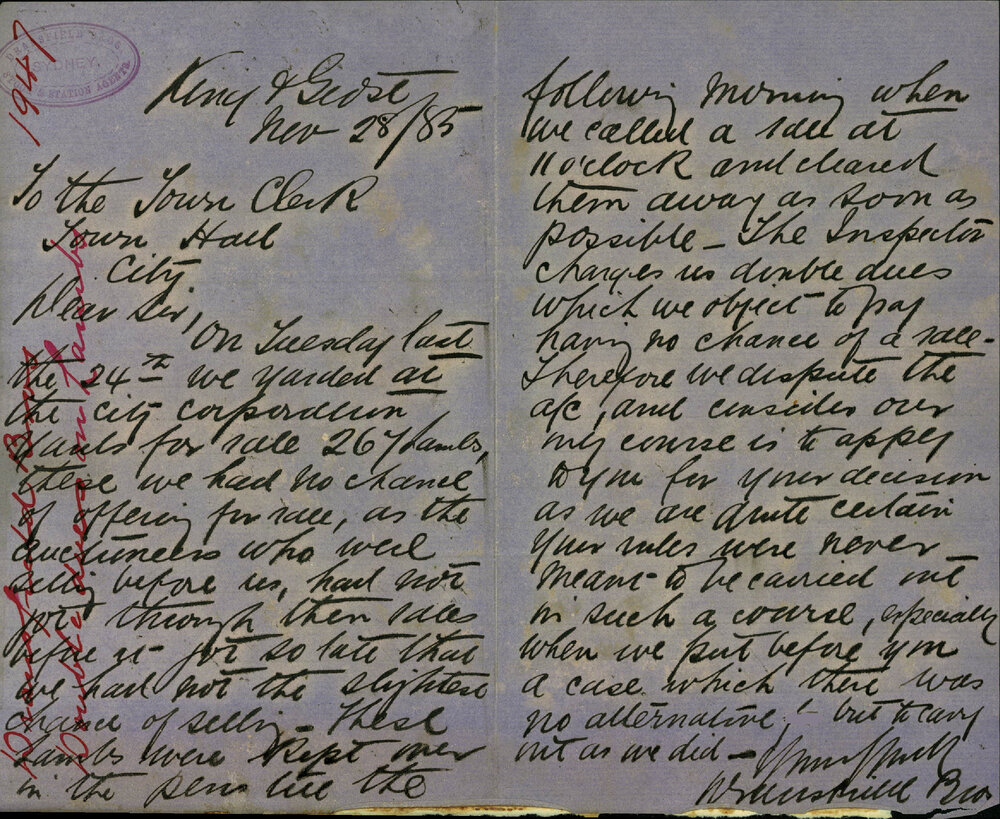 1947
SYDNEY.
& STATION AGENTS
King & Geo St
Nov 28/85
To the Town Clerk
Town Hall
City
Dear Sir,
On Tuesday last
the 24th we yarded at
the city corporation
yards for sale 267 lambs,
these we had no chance
of offering for sale, as the
auctioneers who were
selling before us, had not
got through their sales
before it got so late that
we had not the slightest
chance of selling – These
lambs were kept over
in the pens till the
following morning when
we called a sale at
11 o'clock and cleared
them away as soon as
possible – The Inspector
charges us double dues
which we object to pay
having no chance of a sale –
Therefore we dispute the
a/c, and consider our
only course is to apply
to you for your decision
as we are quite certain
your rules were never
meant to be carried out
in such a course, especially
when we put before you
a case which there was
no alternative! – but to carry
out as we did –
Yours Truly
Bros
Double dues on Lambs